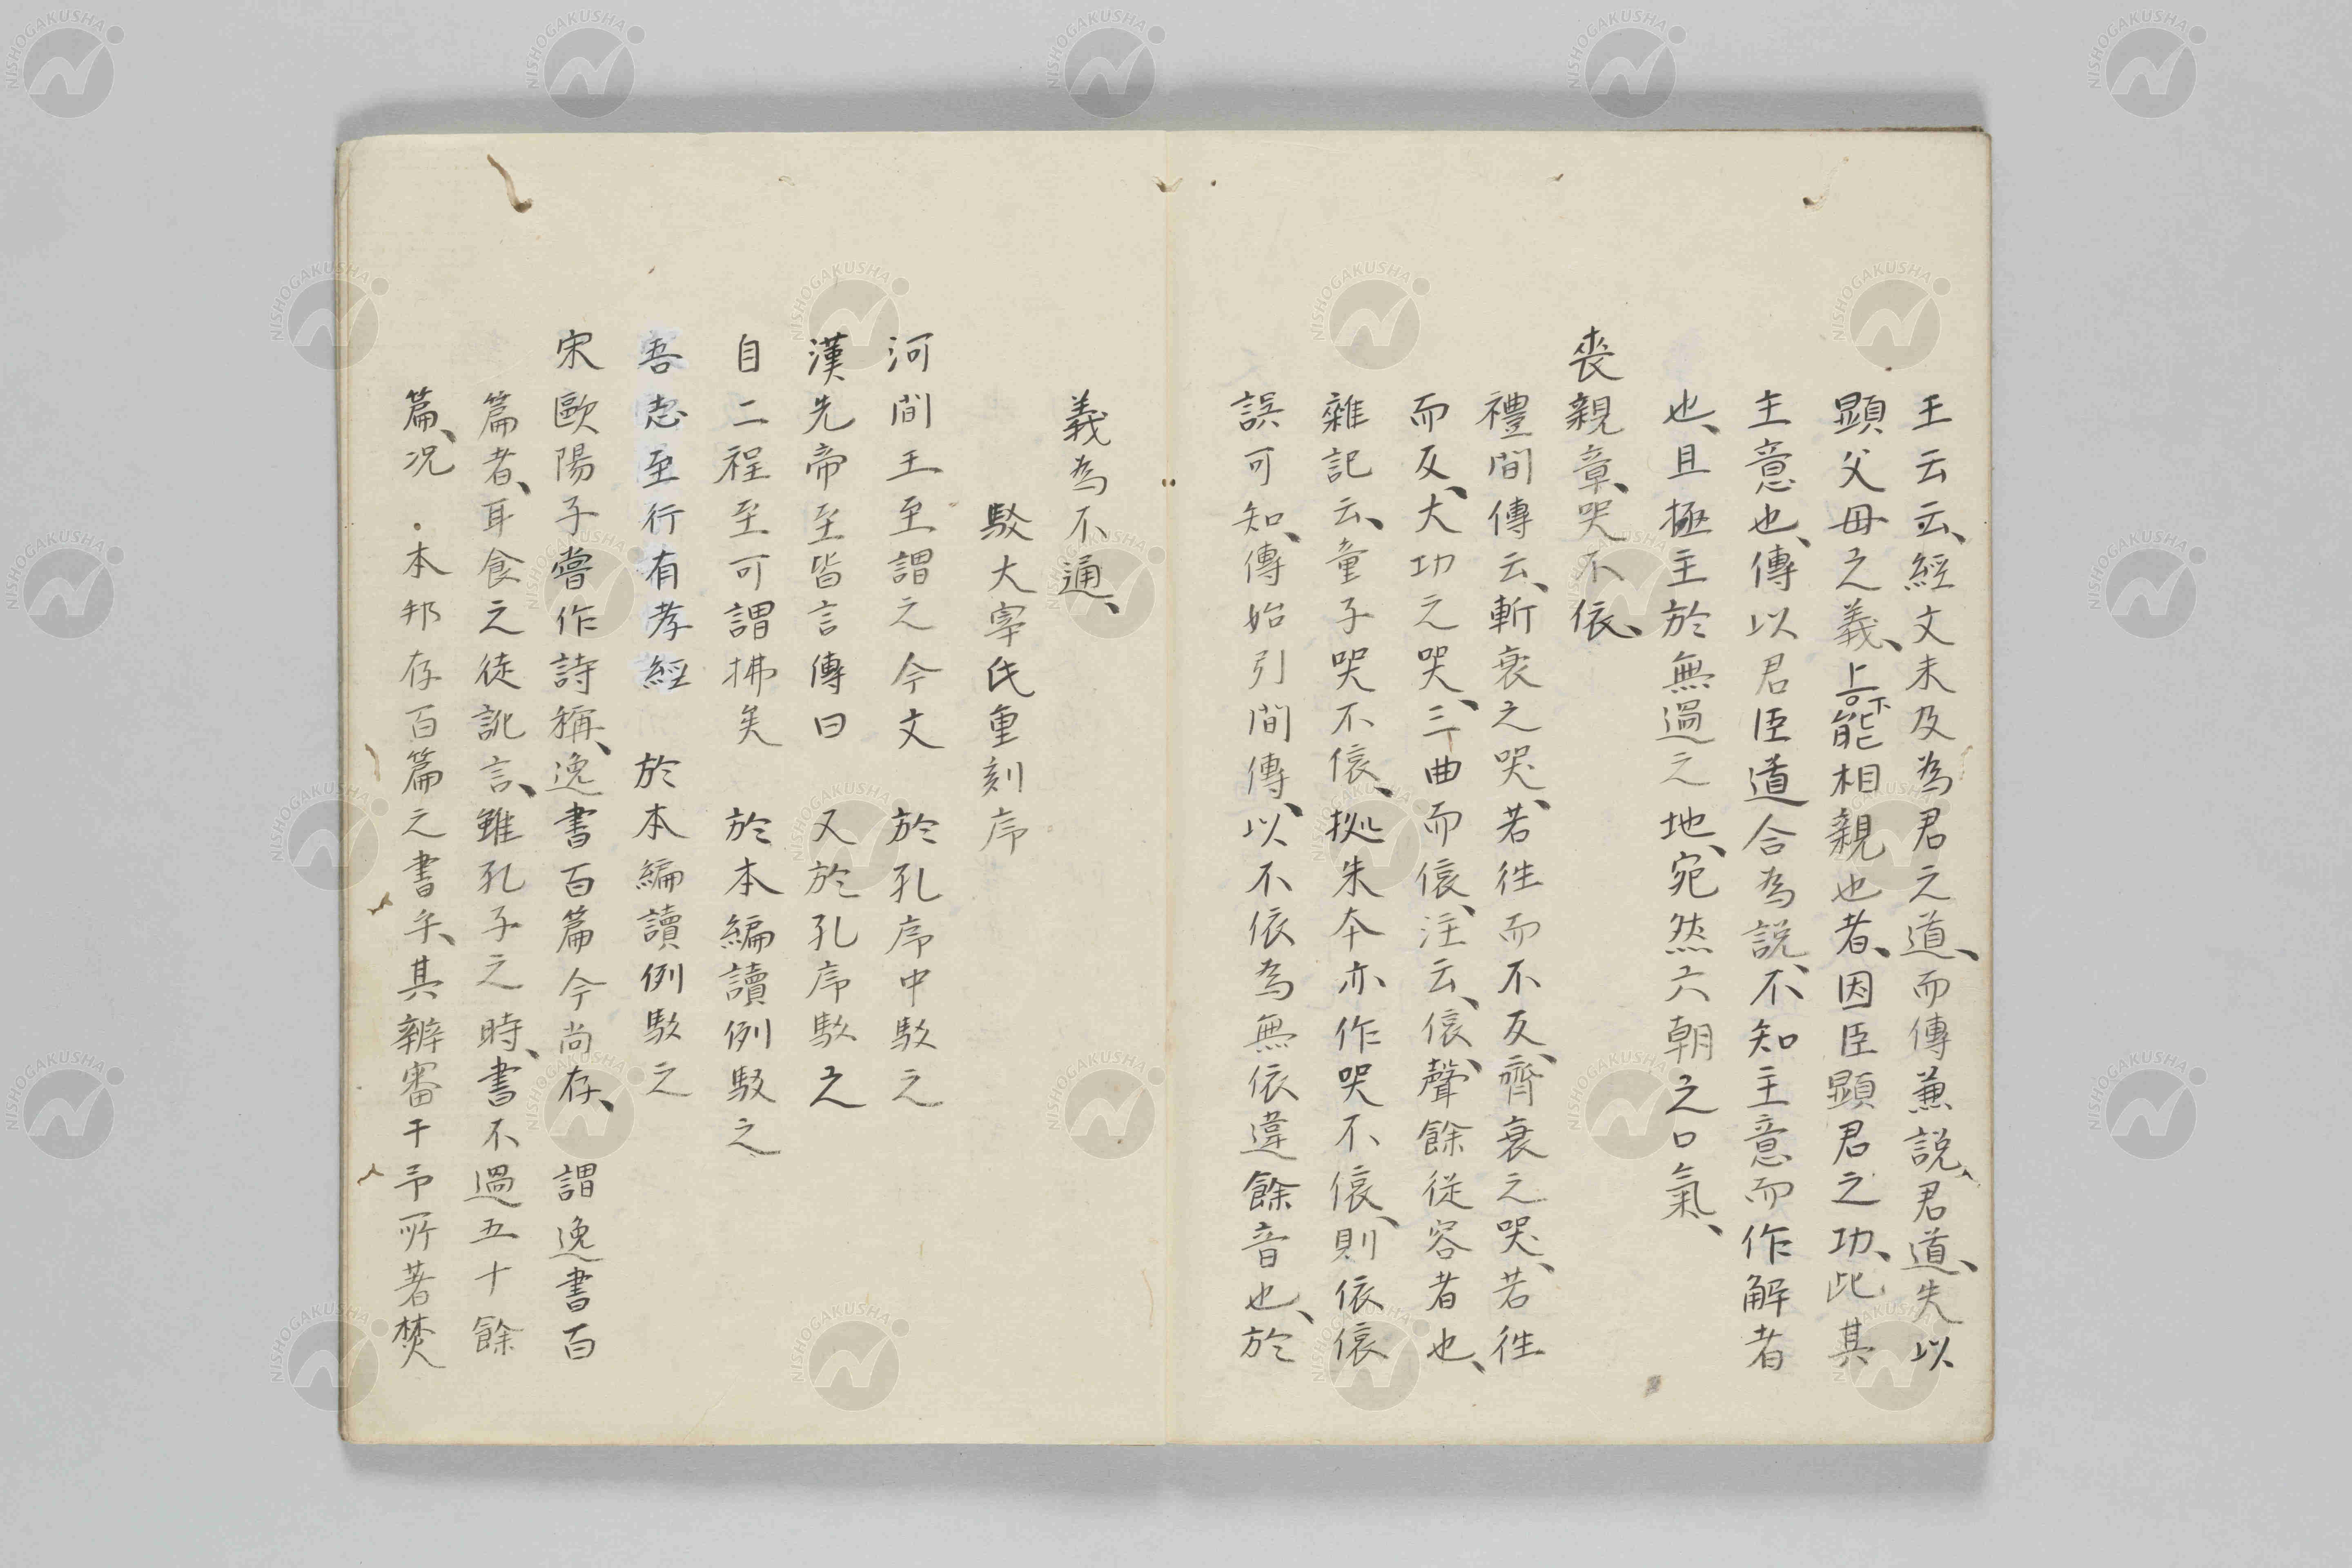 王云云、經文未及為君之道、而傳兼説、君道、失以
顕父母之義、上下能相親也者、因臣顕君之功、此其
主意也、傳以君臣道合為説、不知主意而作解者
也、且極主於無過之地、宛然六朝之口氣、
喪親章、哭不依、
禮間傳云、斬衰之哭、若徃而不反、齊衰之哭、若徃
而反、大功之哭、三曲而偯、注云、偯、聲餘從容者也、
雜記云、童子哭不偯、拠朱本亦作哭不偯、則依偯
誤可知、傳始引間傳、以不依為無依違餘音也、於
義為不通、
駁大宰氏重刻序
河間王至謂之今文　於孔序中駁之
漢先帝至皆言傳曰　又於孔序駁之
自二程至可謂拂矣　於本編讀例駁之
吾忠至行有孝經　於本編讀例駁之
宋歐陽子嘗作詩稱、逸書百篇今尚存、　謂逸書百
篇者、耳食之徒訛言、雖孔子之時、書不過五十餘
篇、况　本邦存百篇之書乎、其辨審于予所著焚
NISHOGAKUSHA